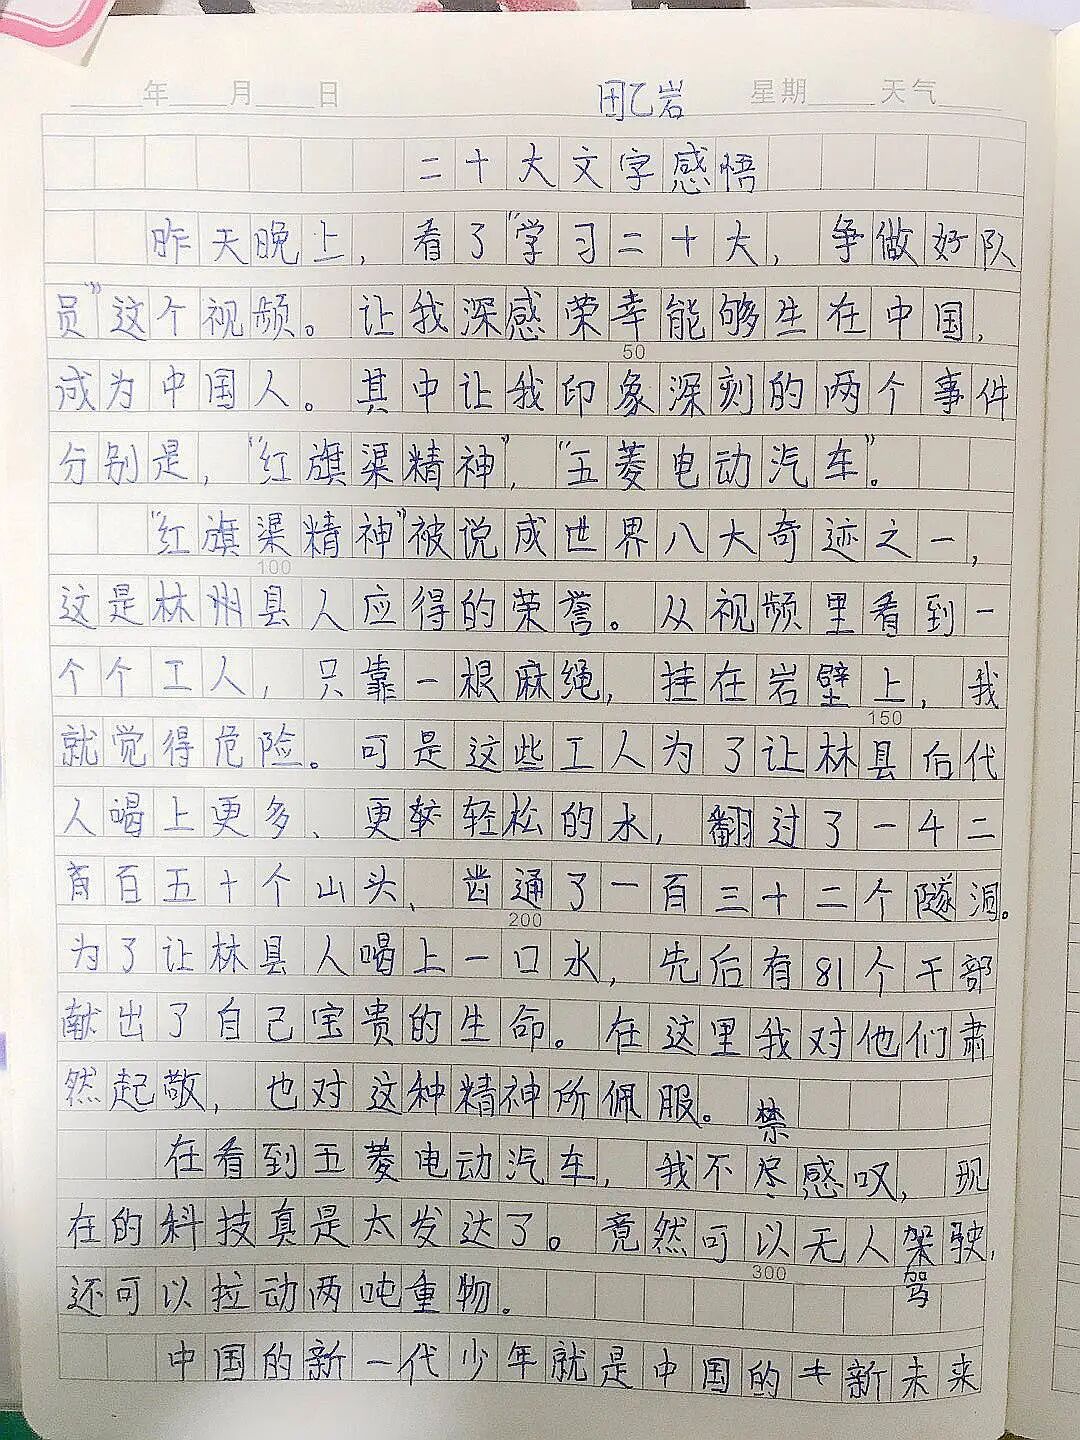 年 月 日 田乙岩 星期 天气
二十大文字感悟
昨天晚上，看了“学习二十大，争做好队
员”这个视频。让我深感荣幸能够生在中国，
50
成为中国人。其中让我印象深刻的两个事件
分别是，“红旗渠精神”，“五菱电动汽车”。
“红旗渠精神”被说成世界八大奇迹之一，
100
这是林州县人应得的荣誉。从视频里看到一
个个工人，只靠一根麻绳，挂在岩壁上，我
150
就觉得危险。可是这些工人为了让林县后代
人喝上更多、更较轻松的水，翻过了一4二
百五十个山头、凿通了一百三十二个隧洞。
200
为了让林县人喝上一口水，先后有81个干部
献出了自己宝贵的生命。在这里我对他们肃
然起敬，也对这种精神所佩服。
禁
在看到五菱电动汽车，我不尽感叹，现
在的科技真是太发达了。竟然可以无人架驶，
300
驾
还可以拉动两吨重物。
中国的新一代少年就是中国的新未来